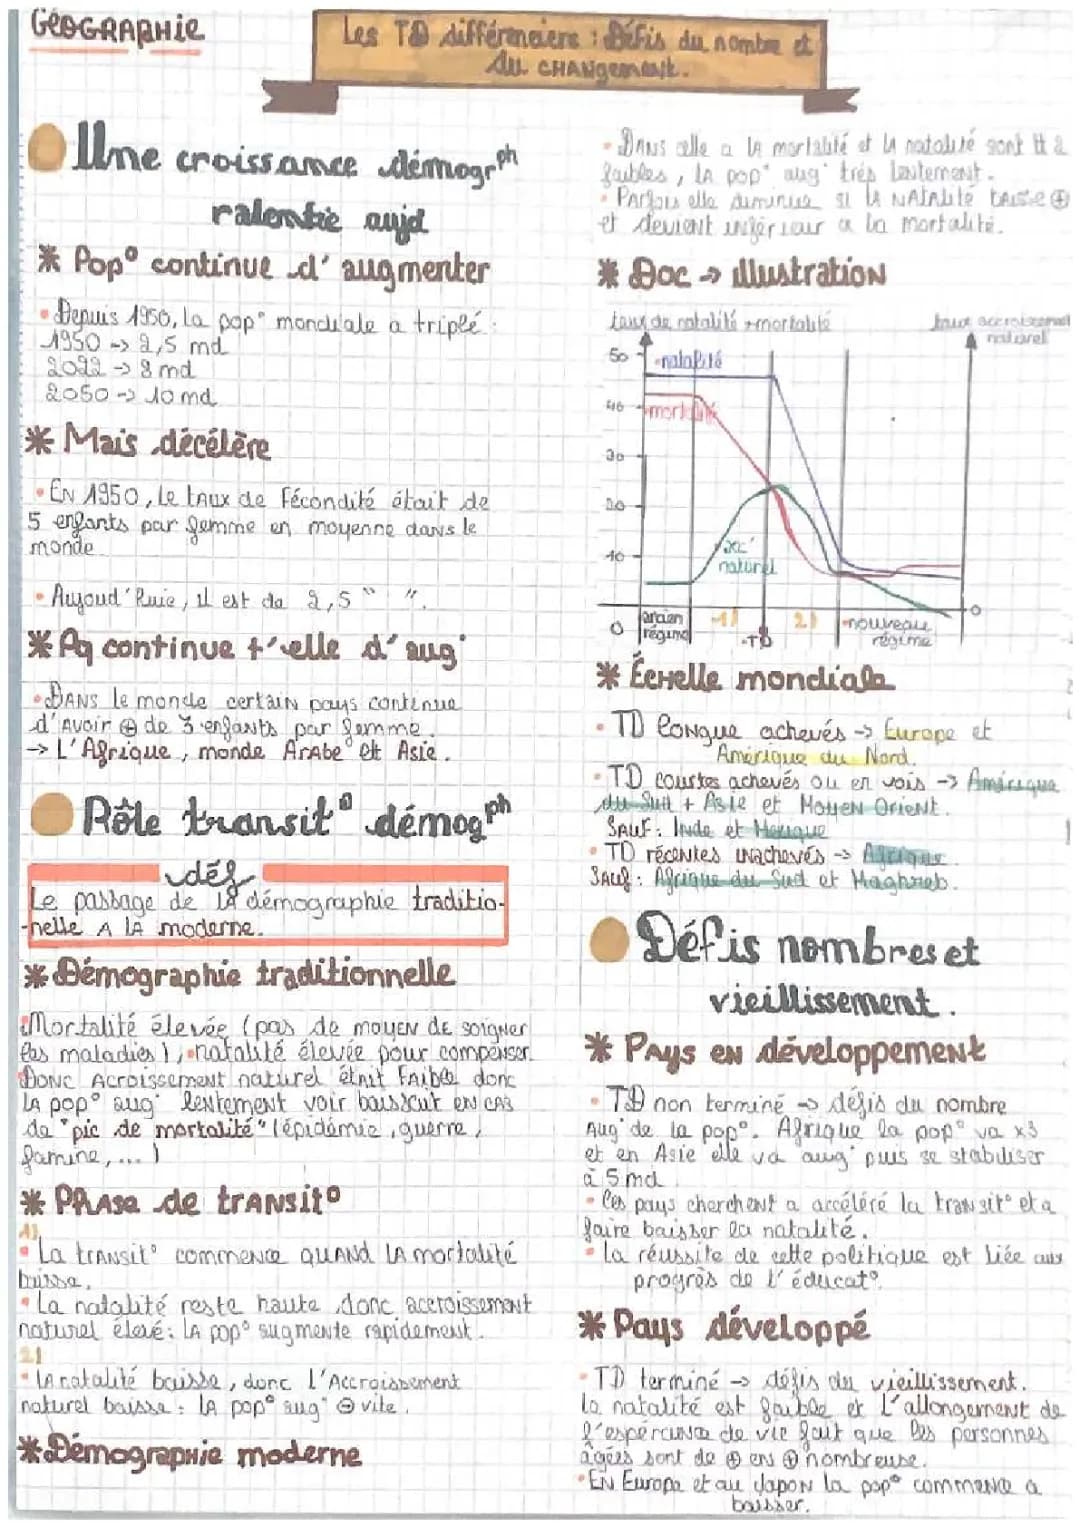 GÉOGRAPHIE
Les TD différenciers : Défis du nombre et
du CHANgement.
Une croissance démogrph
ralentie aujd
* Pop° continue d'augmenter
• Depuis 1950, la pop° mondiale a triplé :
1950 -> 2,5 md
2022 -> 8 md
2050 -> 10 md
* Mais décélère
• EN 1950, Le tAux de Fécondité était de
5 enfants par femme en moyenne dans le
monde
• Aujoud'huie, il est de 2,5 " ".
* Pq continue t'elle d'aug°
• DANS le monde certain pays continue
d'Avoir ⊕ de 3 enfants par femme.
-> L'Afrique, monde ArAbe et Asie.
Rôle transit° démogph
déf
Le passage de lA démographie traditio-
-nelle A lA moderne.
* Démographie traditionnelle
• Mortalité élevée (pas de moyen de soigner
les maladies), • natalité élevée pour compenser.
DONC Acroissement naturel était FAible donc
lA pop° aug° lentement voir baissait en cas
de "pic de mortalité" (épidémie, guerre,
famine, ... )
* PhAse de transit°
1)
• La transit° commence quand lA mortalité
baisse.
• La natalité reste haute, donc accroissement
naturel élevé : lA pop° augmente rapidement.
2)
• lA natalité baisse, donc l'Accroissement
naturel baisse : lA pop° aug° ⊖ vite.
* Démographie moderne
• DANS celle a lA mortalité et lA natalité sont tt 2
faibles, lA pop° aug° très lentement.
• Parfois elle diminue si lA NAtAlité baisse ⊕
et devient inférieur a la mortalité.
* Doc -> illustration
taux de natalité + mortalité
taux accroissement
naturel
50
natalité
40
mortalité
30
20
10
acc°
naturel
0
0
ancien
régime
1)
TD
2)
nouveau
régime
* Échelle mondiale
• TD longue achevés -> Europe et
Amérique du Nord.
• TD courtes achevés ou en vois -> Amérique
du Sud + Asie et Moyen Orient.
SAUF : Inde et Mexique
• TD récentes inachevés -> Afrique.
SAUF : Afrique du Sud et Maghreb.
Défis nombres et
vieillissement.
* PAys en développement
• TD non terminé -> défis du nombre
Aug° de la pop°. Afrique la pop° va x3
et en Asie elle va aug° puis se stabiliser
à 5 md.
• Ces pays cherchent a accéléré la transit° et a
faire baisser la natalité.
• la réussite de cette politique est liée aux
progrès de l'éducat°
* Pays développé
• TD terminé -> défis du vieillissement.
la natalité est faible et l'allongement de
l'espérance de vie fait que les personnes
âgées sont de ⊕ en ⊕ nombreuse.
• EN Europe et au Japon la pop° commence a
baisser.